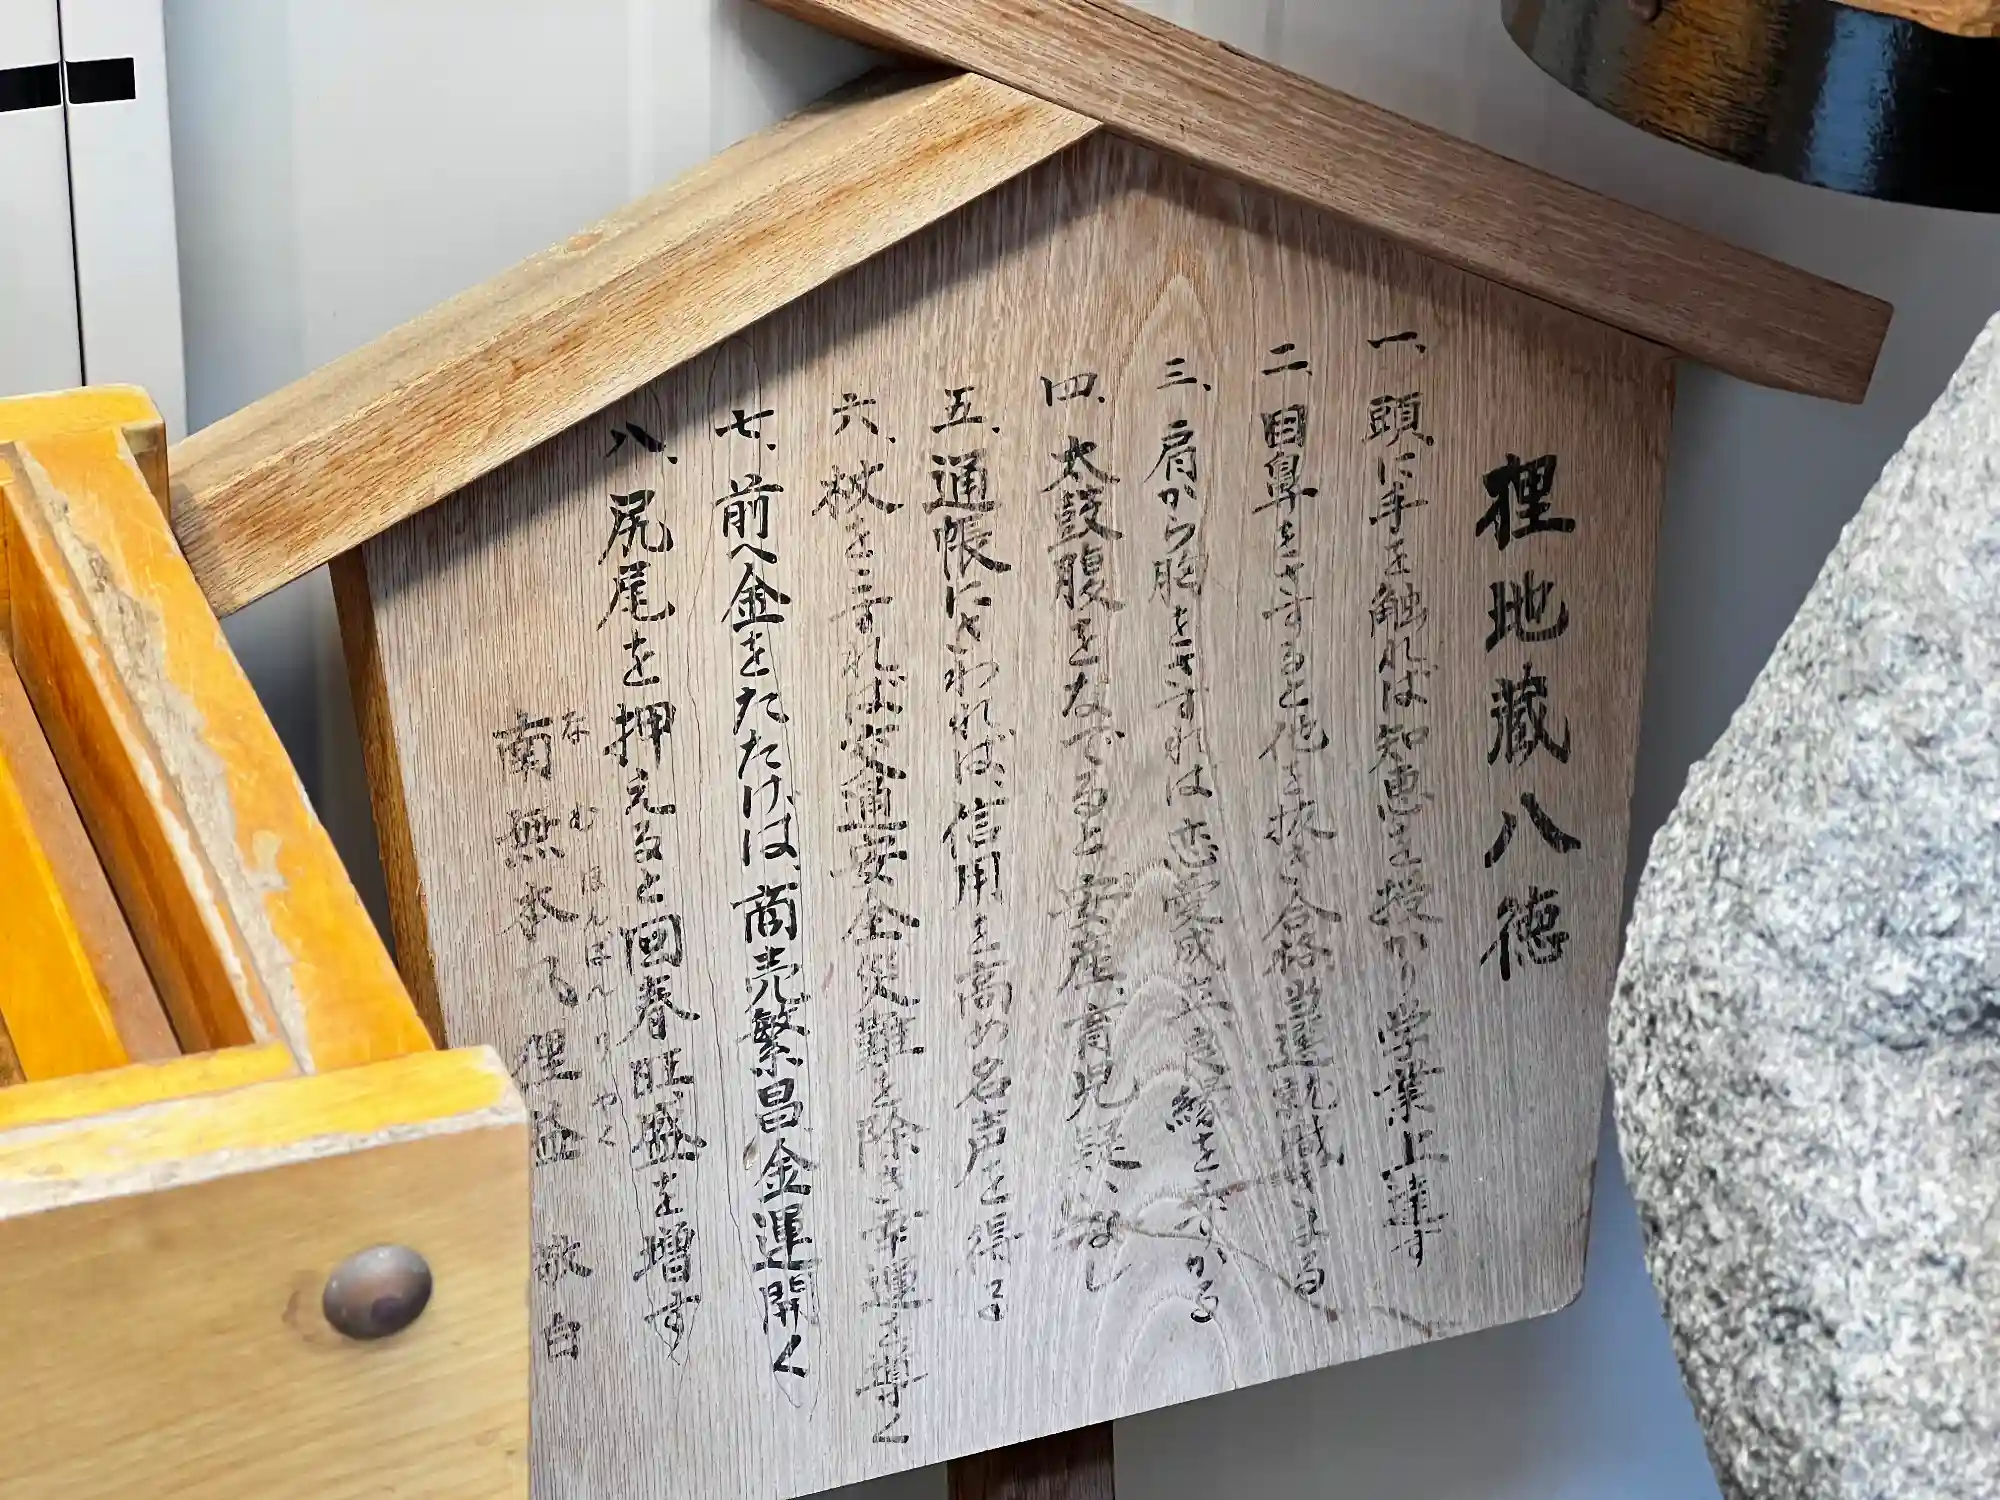 狸地蔵八徳
一、頭に手を触れば知恵を授かり学業上達す
二、目鼻をさすると他を抜き合格当選就職きまる
三、肩から胸をさすれは恋愛成立良縁をさずかる
四、太鼓腹をなでると安産、育児疑いなし
五、通帳にさわれば、信用を高め名声を得る
六、杖をさすれば交通安全災難を除き幸運を導く
七、前へ金をたたけば、商売繁昌金運開く
八、尻尾を押えると回春旺盛を増す
なむ ほんぽん りやく
南無本 狸益 敬白